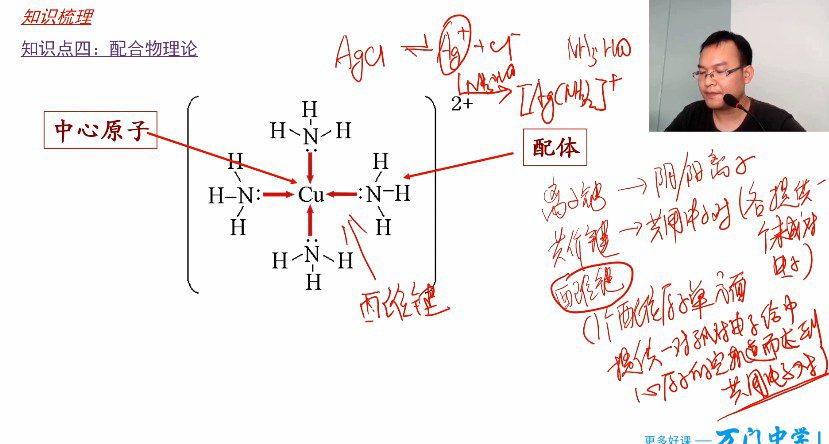 知识梳理
知识点四：配合物理论
AgCl ⇌ Ag⁺ + Cl⁻
NH₃·H₂O
NH₃·H₂O
[Ag(NH₃)₂]⁺
2+
中心原子
配体
H
H–N–H
H
H–N:
H
Cu
H
:N–H
H
H–N–H
H
配位键
离子键 → 阴阳离子
共价键 → 共用电子对（各提供一
个未成对
电子）
配位键
（1个配位原子单方面
提供一对孤对电子给中
心原子的空轨道而达到
共用电子对）
更多好课 — 万门中学